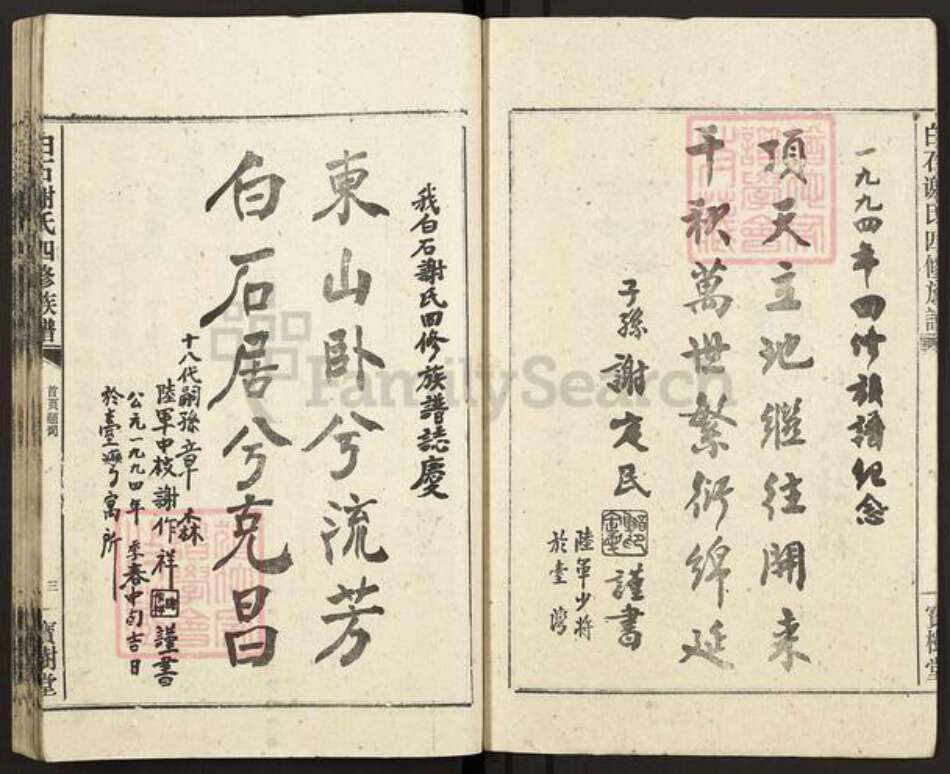 一九九四年四修族譜纪念
顶天立地继往開来
千秋萬世繁衍綿延
子孫謝定民 謹書
陸軍少將
於臺灣
寶樹堂
我白石謝氏四修族譜誌慶
東山卧兮流芳
白石居兮克昌
十八代嗣孫章森
陸軍中校謝作祥 謹書
公元一九九四年季春中旬吉日
於臺灣寓所
白石謝氏四修族譜
首頁題詞
三
寶樹堂
FamilySearch